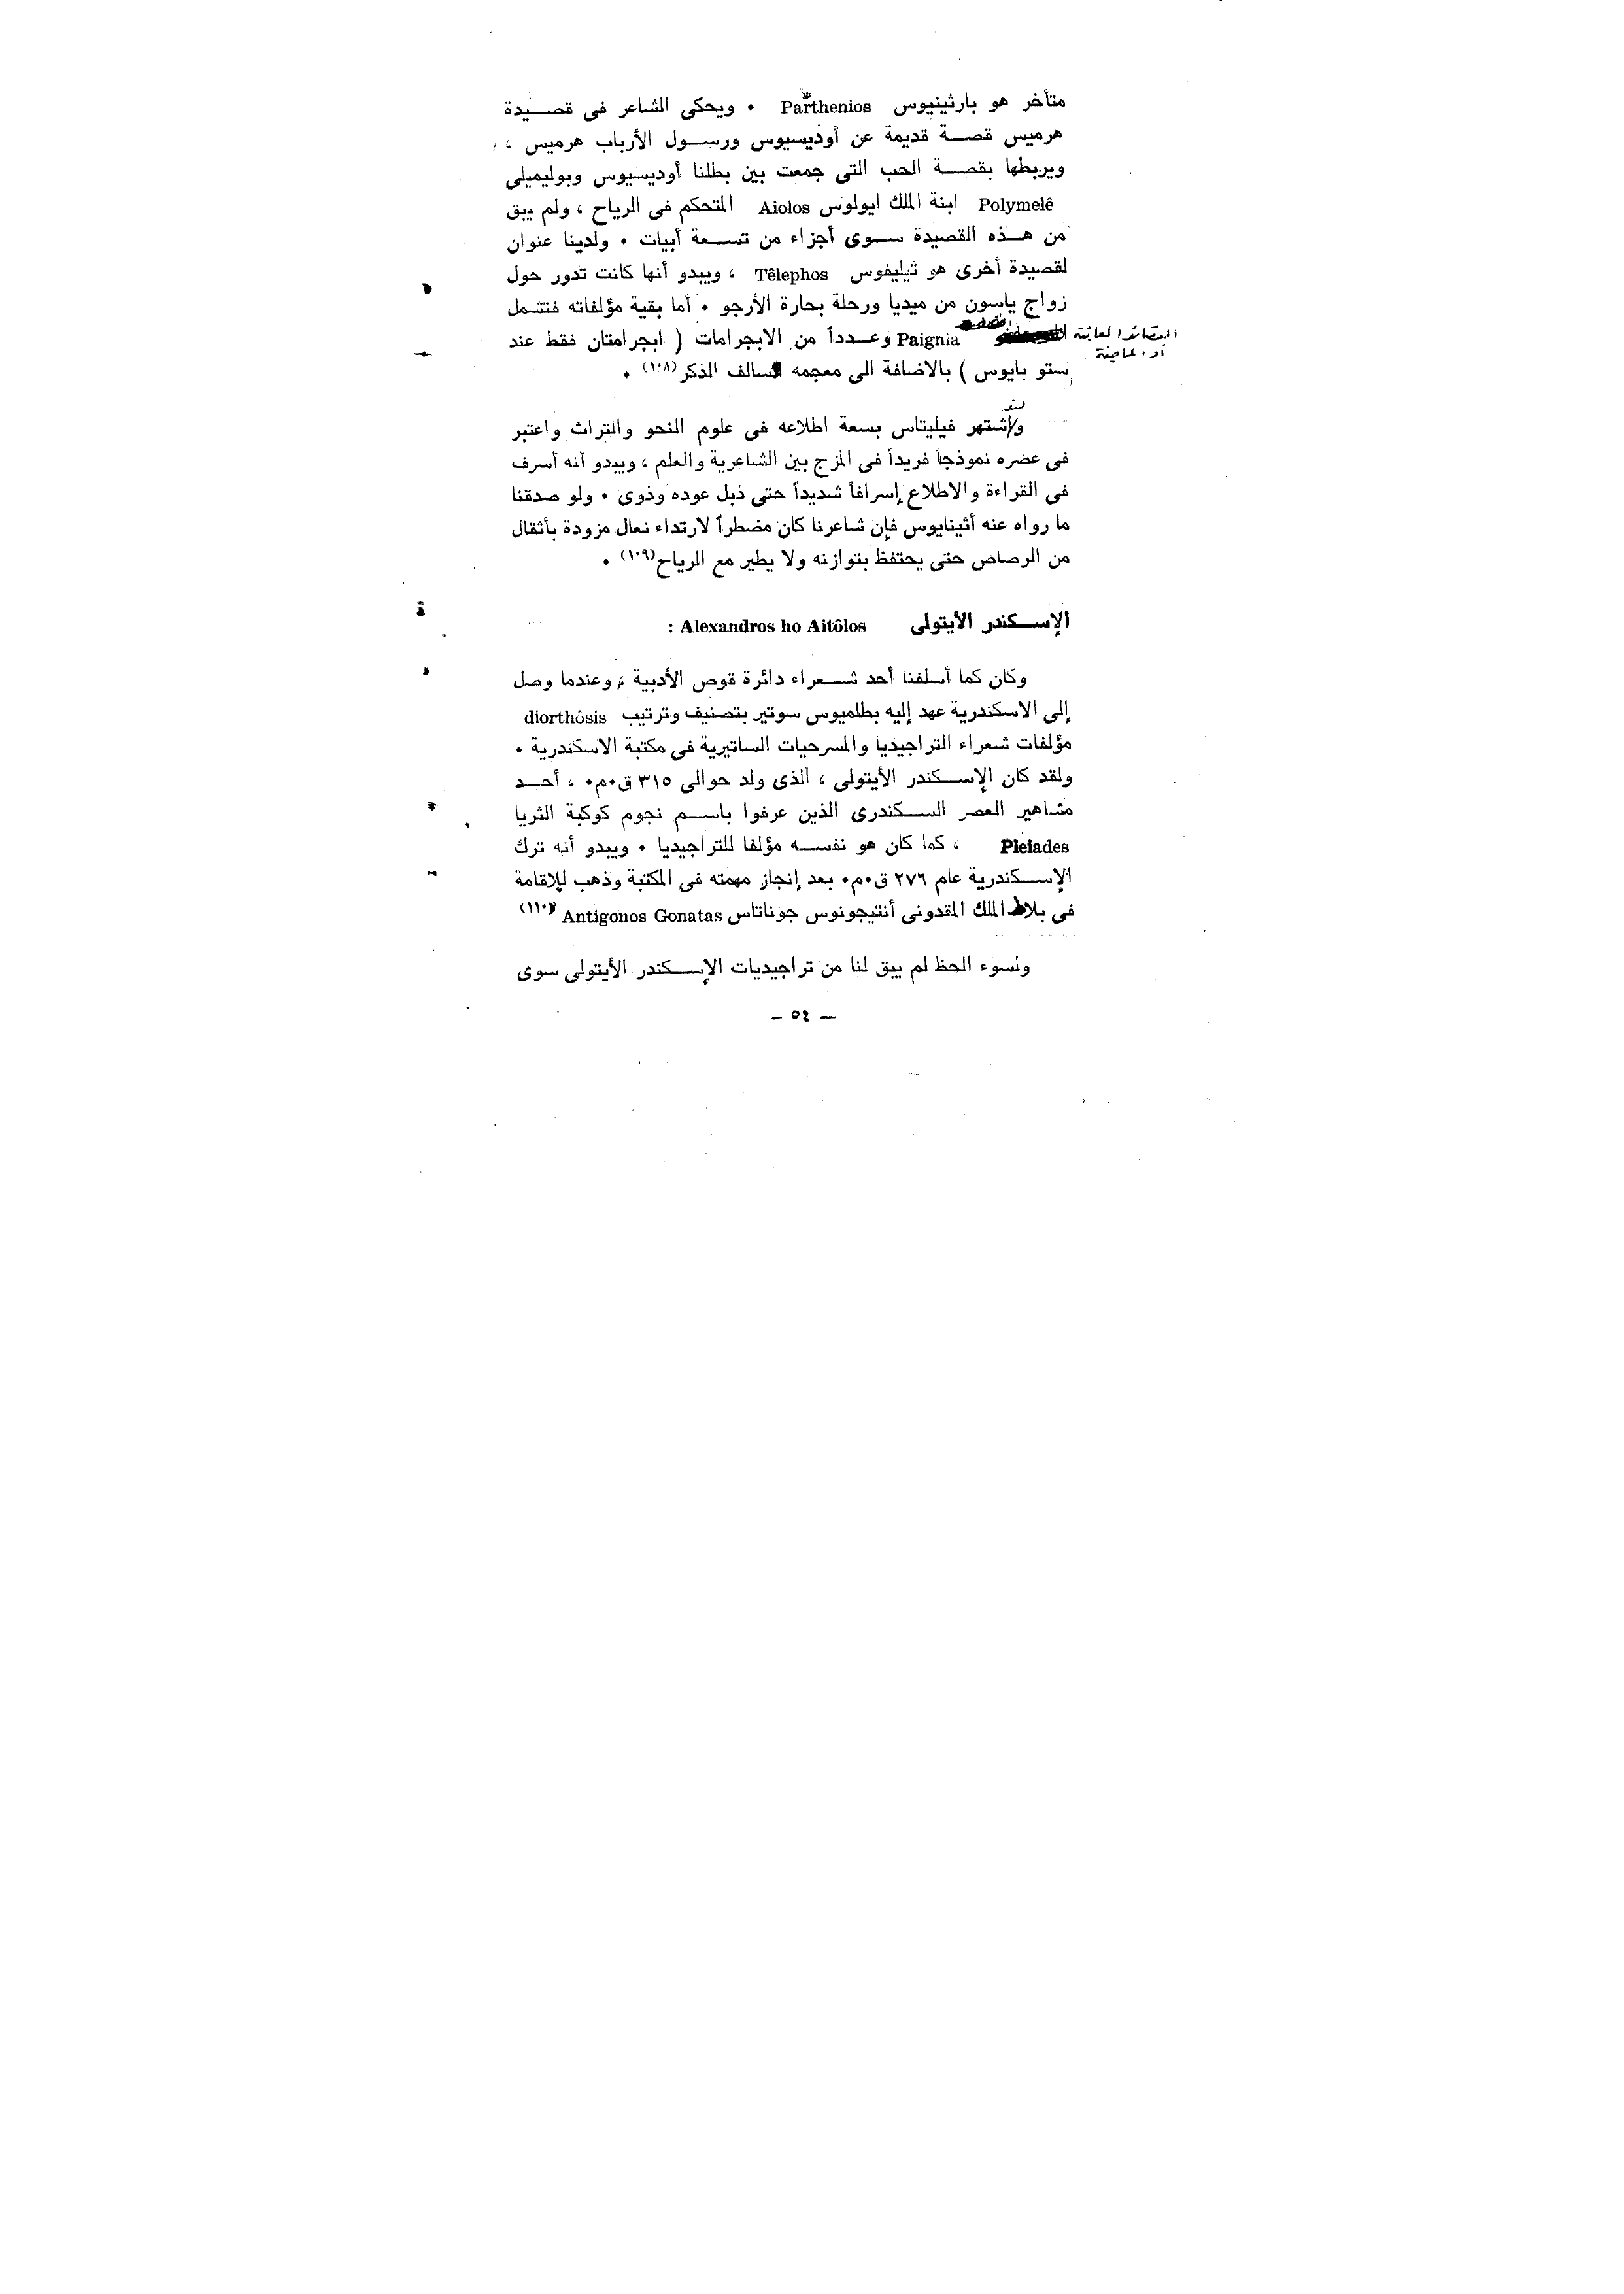 متأخر هو بارثينيوس Parthenios ٠ ويحكى الشاعر فى قصيدة
هرميس قصة قديمة عن أوديسيوس ورسول الأرباب هرميس ،
ويربطها بقصة الحب التى جمعت بين بطلنا أوديسيوس وبوليميلى
Polymelê ابنة الملك ايولوس Aiolos المتحكم فى الرياح ، ولم يبق
من هذه القصيدة سوى أجزاء من تسعة أبيات ٠ ولدينا عنوان
لقصيدة أخرى هو تيليفوس Têlephos ، ويبدو أنها كانت تدور حول
زواج ياسون من ميديا ورحلة بحارة الأرجو ٠ أما بقية مؤلفاته فتشمل
القصائد العابثة
أو الماجنة
Paignia وعدداً من الابجرامات ( ابجرامتان فقط عند
ستو بايوس ) بالاضافة الى معجمه السالف الذكر (١٠٨) ٠
لقد
واشتهر فيليتاس بسعة اطلاعه فى علوم النحو والتراث واعتبر
فى عصره نموذجاً فريداً فى المزج بين الشاعرية والعلم ، ويبدو أنه أسرف
فى القراءة والاطلاع إسرافاً شديداً حتى ذبل عوده وذوى ٠ ولو صدقنا
ما رواه عنه أثينايوس فإن شاعرنا كان مضطراً لارتداء نعال مزودة بأثقال
من الرصاص حتى يحتفظ بتوازنه ولا يطير مع الرياح (١٠٩) ٠
الإسكندر الأيتولى Alexandros ho Aitôlos :
وكان كما أسلفنا أحد شعراء دائرة قوص الأدبية ، وعندما وصل
إلى الاسكندرية عهد إليه بطلميوس سوتير بتصنيف وترتيب diorthôsis
مؤلفات شعراء التراجيديا والمسرحيات الساتيرية فى مكتبة الاسكندرية ٠
ولقد كان الإسكندر الأيتولى ، الذى ولد حوالى ٣١٥ ق٠م٠ ، أحد
مشاهير العصر السكندرى الذين عرفوا باسم نجوم كوكبة الثريا
Pleiades ، كما كان هو نفسه مؤلفا للتراجيديا ٠ ويبدو أنه ترك
الإسكندرية عام ٢٧٦ ق٠م٠ بعد إنجاز مهمته فى المكتبة وذهب للإقامة
فى بلاط الملك المقدونى أنتيجونوس جوناتاس Antigonos Gonatas (١١٠)
ولسوء الحظ لم يبق لنا من تراجيديات الإسكندر الأيتولى سوى
— ٥٤ —